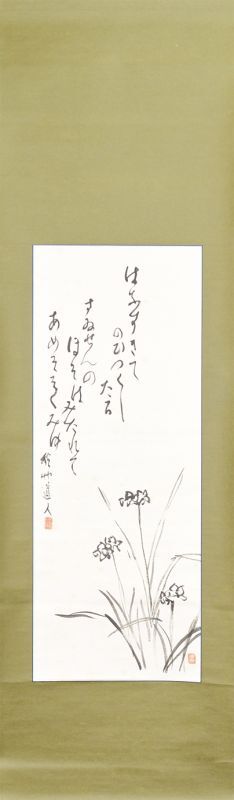 はなすぎて
のびつくし
たる
すゐせんの
ほそはみだれて
あめそそぐみゆ
秋艸道人